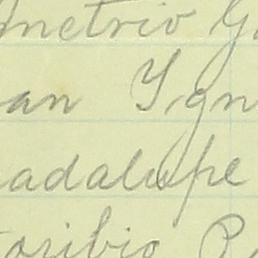 metrio G
an Ygn
adalupe
oribio P